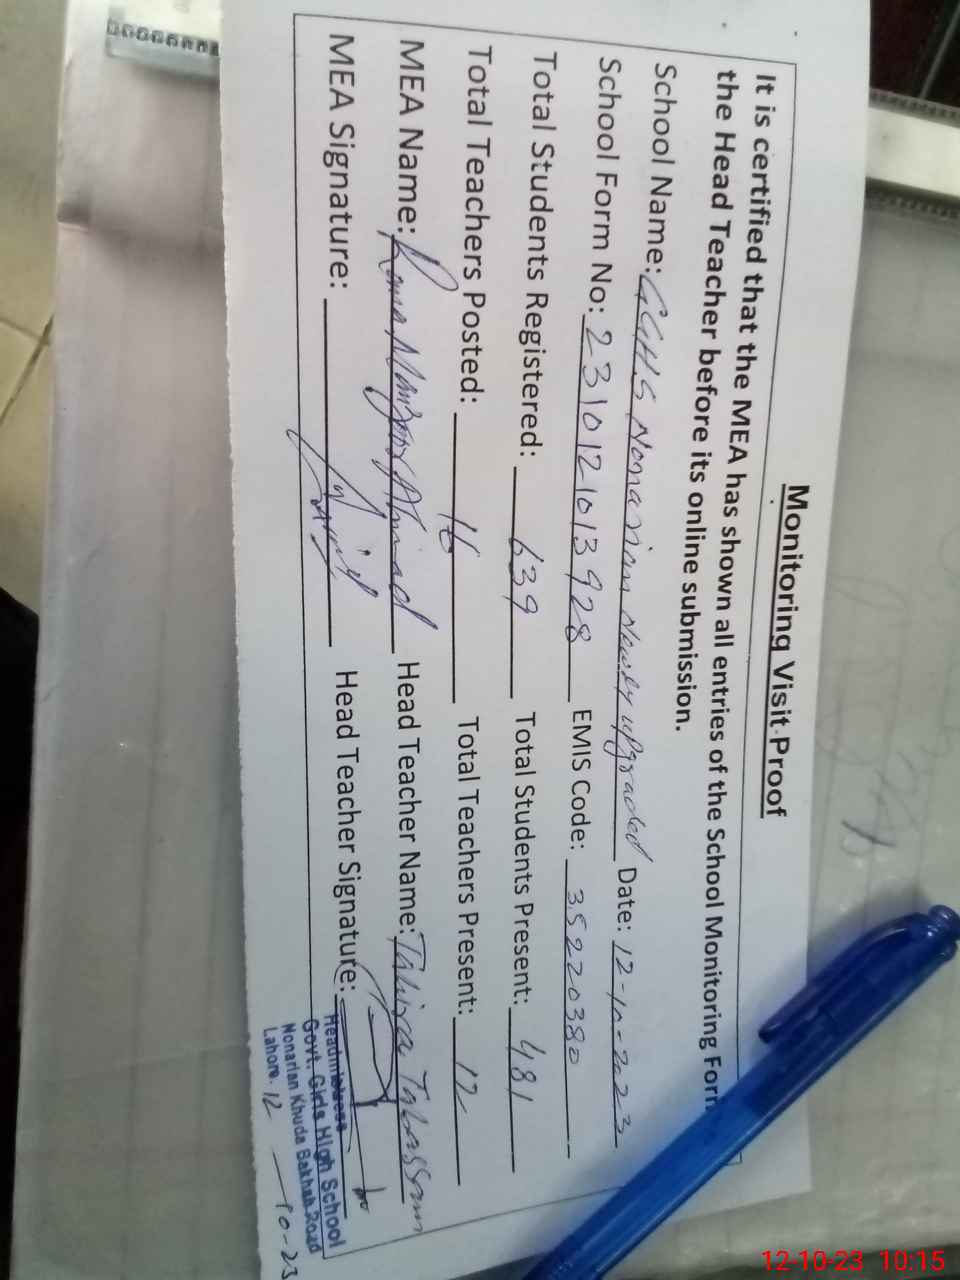 Monitoring Visit Proof
It is certified that the MEA has shown all entries of the School Monitoring Form
the Head Teacher before its online submission.
School Name: GGHS Nonarian Newly upgraded Date: 12-10-2023
School Form No: 2310121013928 EMIS Code: 35220380
Total Students Registered: 639 Total Students Present: 481
Total Teachers Posted: 16 Total Teachers Present: 12
MEA Name: Rana Manzoor Ahmad Head Teacher Name: Tahira Tabassum
MEA Signature: Head Teacher Signature:
Headmistress
Govt. Girls High School
Nonarian Khuda Bakhsh Road
Lahore. 12 - 10-23
12-10-23 10:15